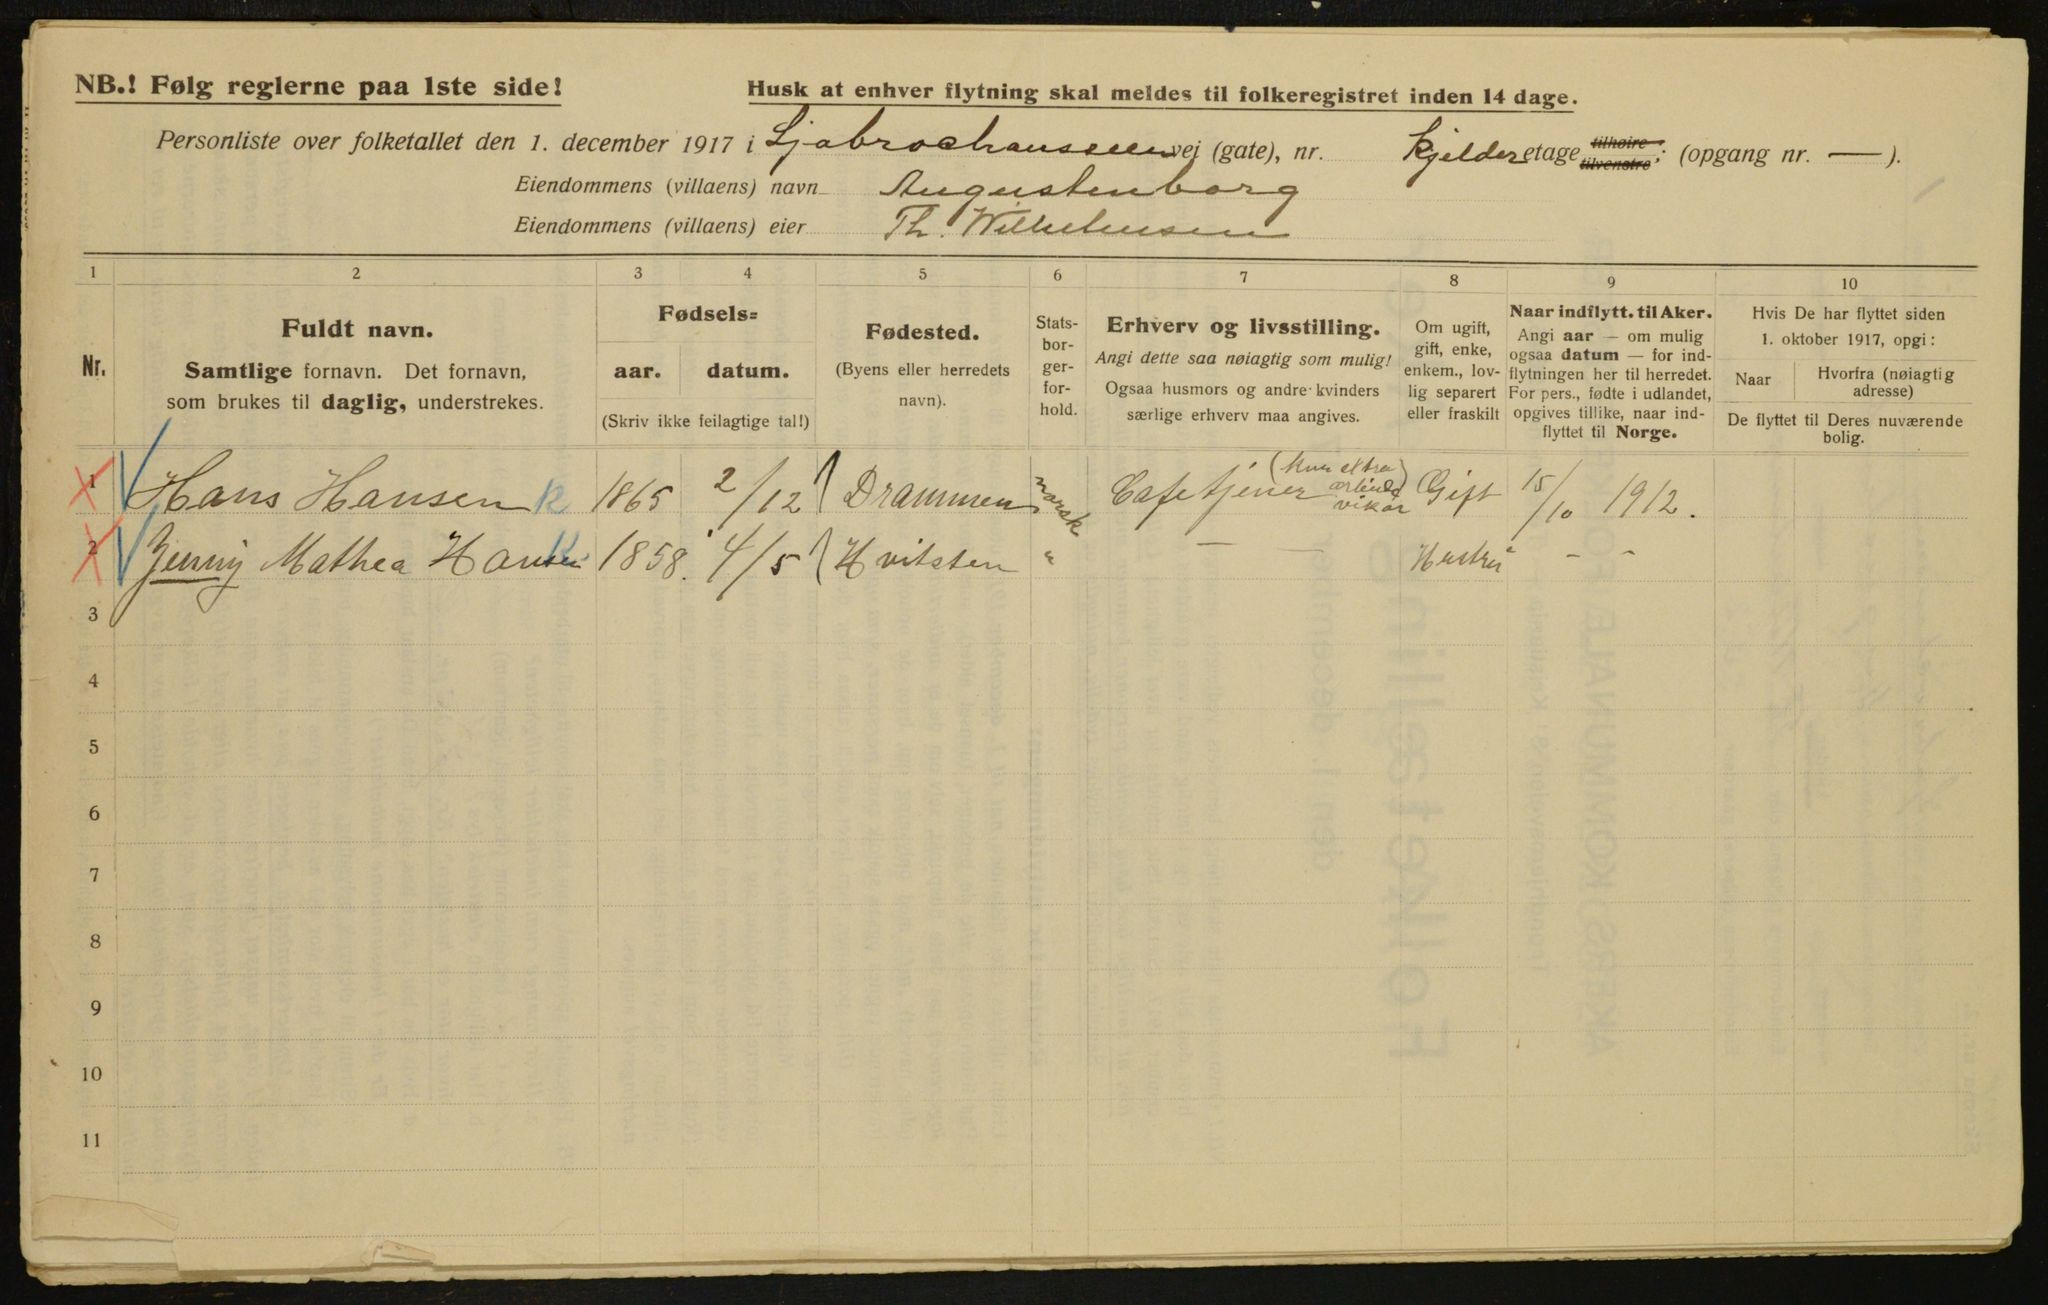 NB.! Følg reglerne paa 1ste side!
Husk at enhver flytning skal meldes til folkeregistret inden 14 dage.
Personliste over folketallet den 1. december 1917 i Ljabrochausseen vej (gate), nr. Kjelder etage tilhøire tilvenstre; (opgang nr. — ).
Eiendommens (villaens) navn Augustenborg
Eiendommens (villaens) eier Th. Wilhelmsen
1 2 3 4 5 6 7 8 9 10
Nr.
Fuldt navn.
Samtlige fornavn. Det fornavn,
som brukes til daglig, understrekes.
Fødsels=
aar. datum.
(Skriv ikke feilagtige tal!)
Fødested.
(Byens eller herredets
navn).
Stats-
bor-
ger-
for-
hold.
Erhverv og livsstilling.
Angi dette saa nøiagtig som mulig!
Ogsaa husmors og andre kvinders
særlige erhverv maa angives.
Om ugift,
gift, enke,
enkem., lov-
lig separert
eller fraskilt
Naar indflytt. til Aker.
Angi aar — om mulig
ogsaa datum — for ind-
flytningen her til herredet.
For pers., fødte i udlandet,
opgives tillike, naar ind-
flyttet til Norge.
Hvis De har flyttet siden
1. oktober 1917, opgi:
Naar
Hvorfra (nøiagtig
adresse)
De flyttet til Deres nuværende
bolig.
1 Hans Hansen K 1865 2/12 Drammen norsk Cafetjener (kun extra vikar) Gift 15/10 1912.
2 Jenny Mathea Hansen K. 1858. 4/5 Hvitsten " — — Hustru - -
3
4
5
6
7
8
9
10
11